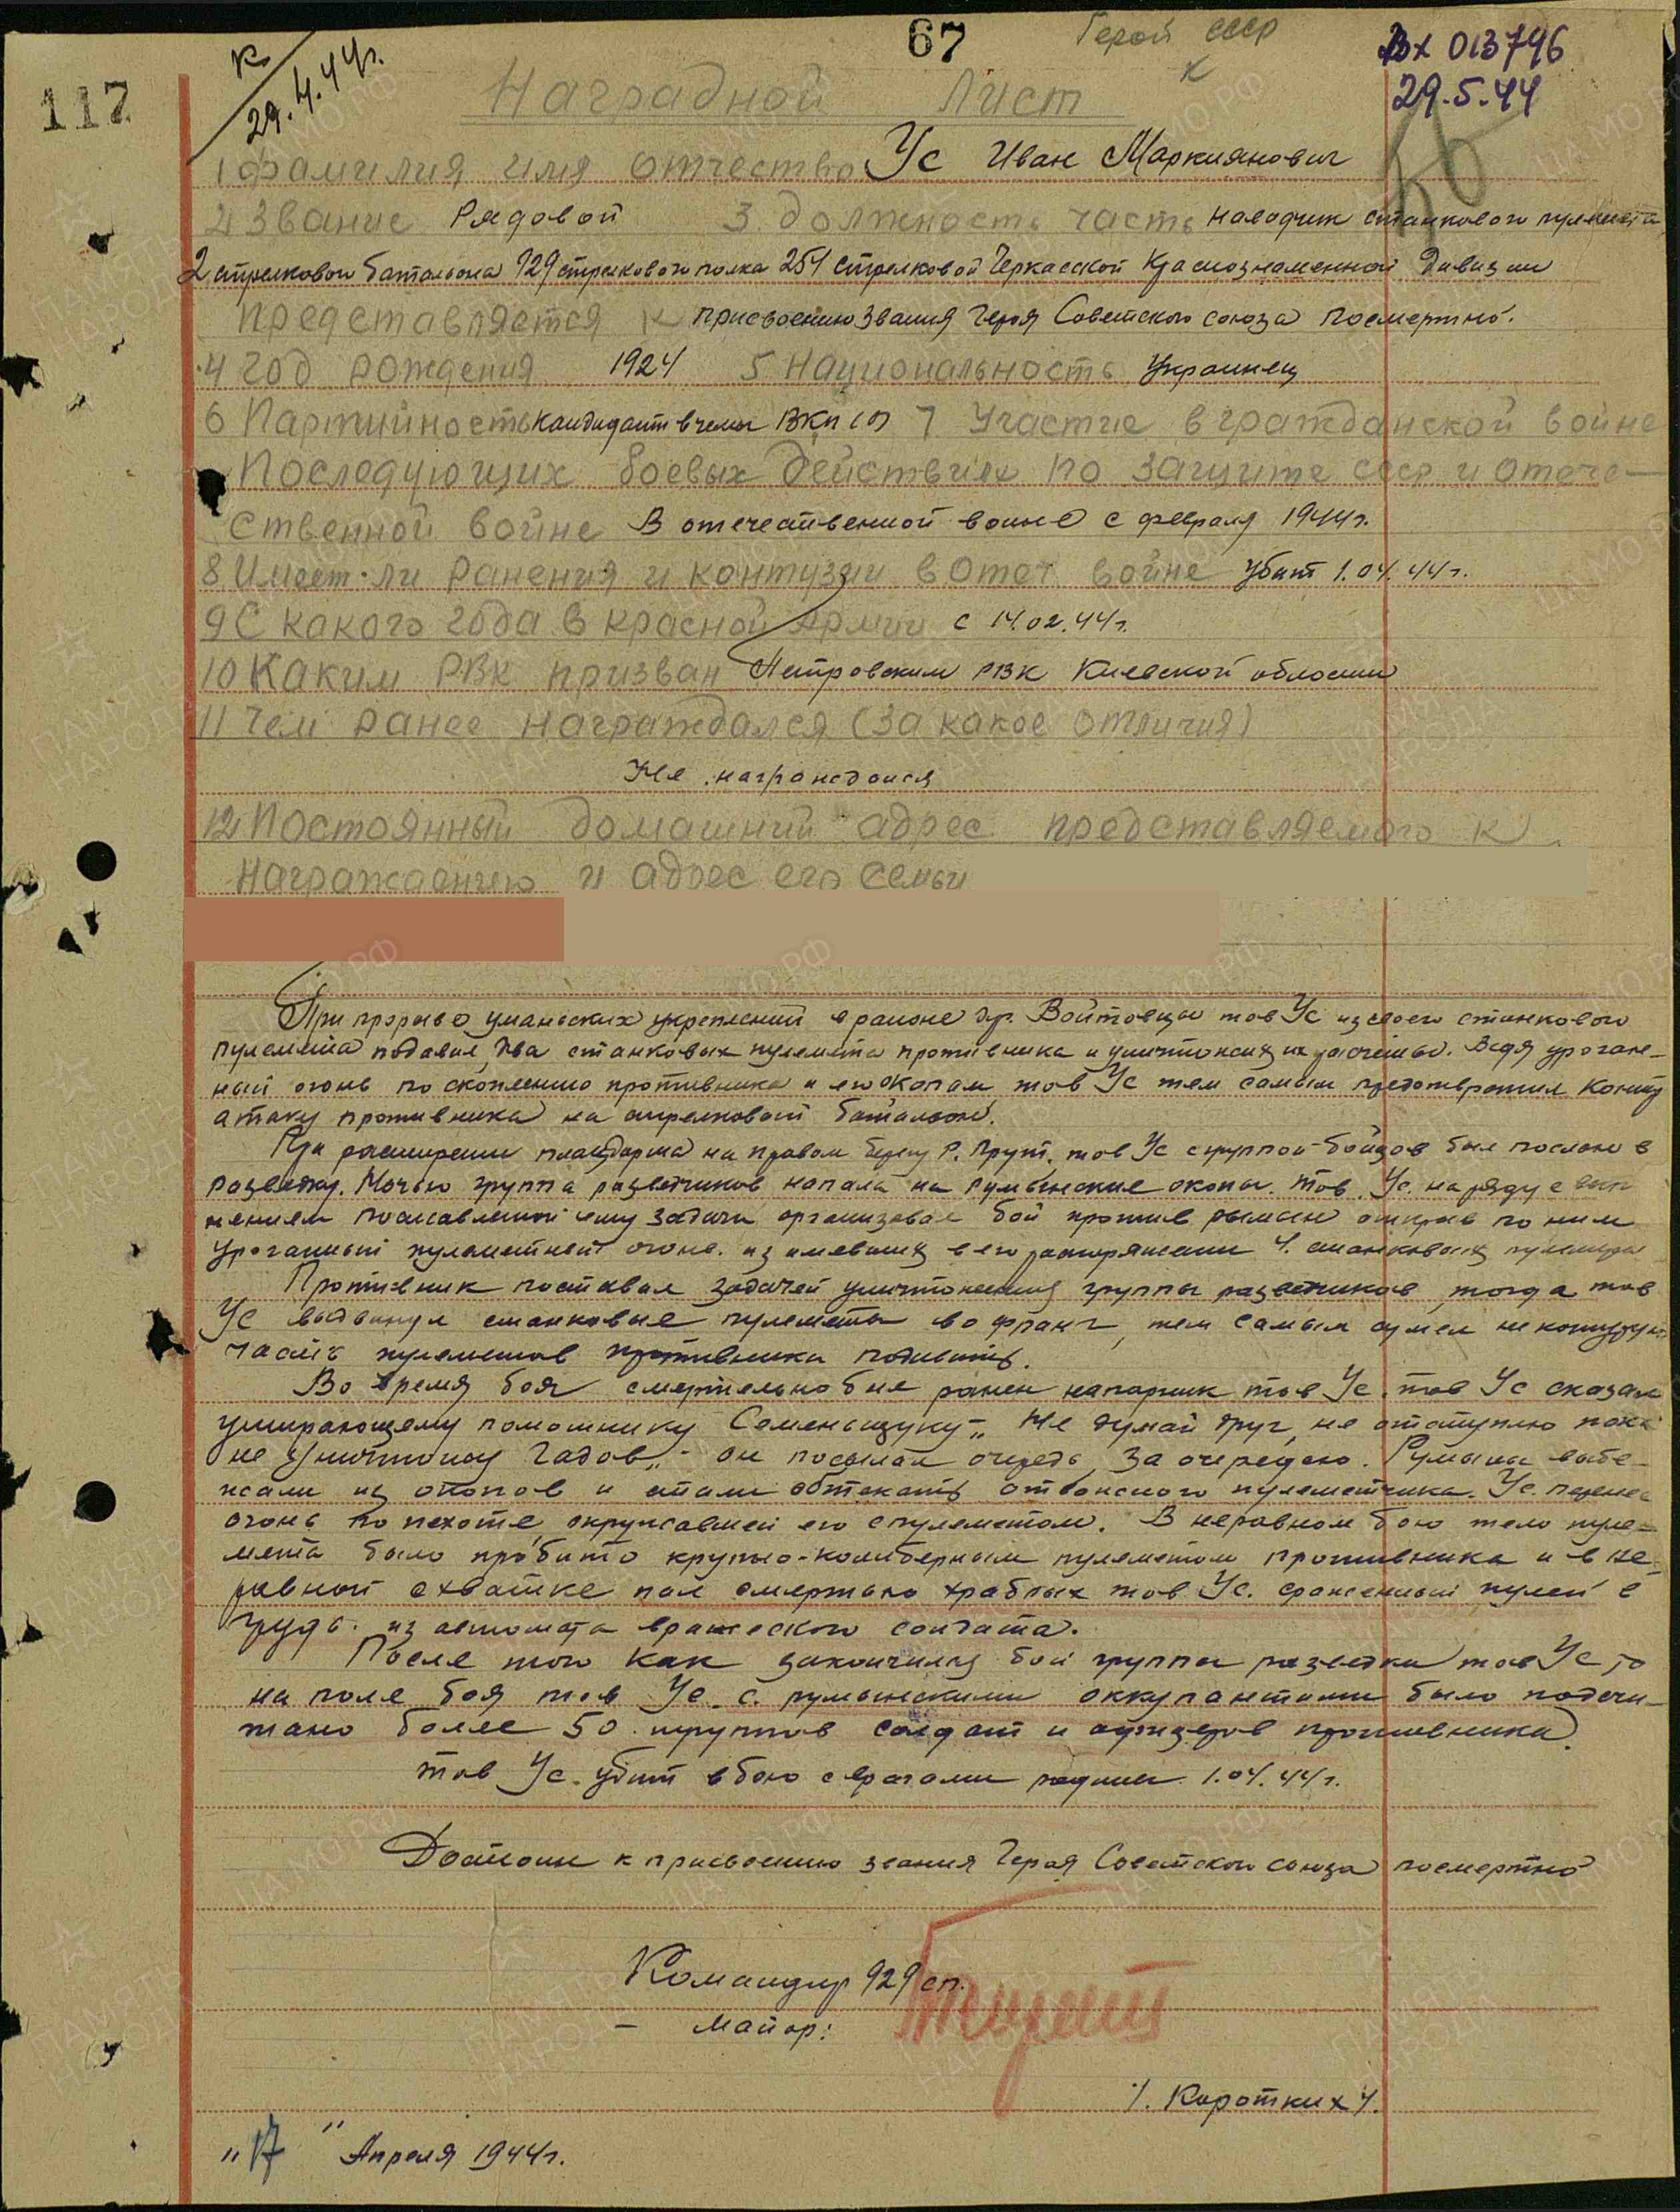 67
Герой СССР
Вх 013796
29.5.44
К
29.4.44г.
117
Наградной Лист
1 Фамилия имя отчество Ус Иван Маркиянович
2 Звание Рядовой 3 должность часть наводчик станкового пулемета
2 стрелкового батальона 929 стрелкового полка 254 стрелковой Черкасской Краснознаменной дивизии
Представляется к присвоению звания Героя Советского союза посмертно.
4 Год рождения 1924 5 Национальность Украинец
6 Партийность кандидат в члены ВКП(б) 7 Участие в гражданской войне
Последующих боевых действиях по защите СССР и отече-
ственной войне В отечественной войне с февраля 1944г.
8 Имеет-ли ранения и контузии в Отет войне Убит 1.04.44г.
9 С какого года в красной Армии с 14.02.44г.
10 Каким РВК призван Петровским РВК Киевской области
11 Чем ранее награждался (за какое отличия)
Не награждался
12 Постоянный домашний адрес представляемого к
награждению и адрес его семьи
При прорыве уманьских укреплений в районе др. Войтовцы тов Ус из своего станкового
пулемета подавил два станковых пулемета противника и уничтожил их расчеты. Ведя ураган-
ный огонь по скоплению противника и его окопам тов Ус тем самым предотвратил
атаку противника на стрелковый батальон.
При расширении плацдарма на правом берегу р. Прут, тов Ус с группой бойцов был послан в
разведку. Ночью группа разведчиков напала на румынские окопы. Тов. Ус. наряду с
нением поставленной ему задачи организовал бой против румын открыв по ним
ураганный пулеметный огонь. из имевших в его распоряжении 4. станковых пулемета
Противник поставил задачей уничтожения группы разведчиков, тогда тов
Ус выдвинул станковые пулеметы во фланг, тем самым сумел
часть пулеметов противника подавить.
Во время боя смертельно был ранен напарник тов Ус. тов Ус сказал
умирающему помощнику Семеньщуку „Не думай друг, не отступлю пока
не уничтожу гадов„ - он посылал очередь за очередью. Румыны выбе-
жали из окопов и стали обтекать отважного пулеметчика. Ус. перенес
огонь по пехоте, окружавшей его с пулеметом. В неравном бою тело пуле-
мета было пробито крупно-калиберным пулеметом противника и в не-
равной схватке пал смертью храбрых тов Ус. сраженный пулей в
грудь. из автомата вражеского солдата.
После того как закончился бой группы разведки тов Ус, то
на поле боя тов Ус с. румынскими оккупантами было подсчи-
тано более 50 трупов солдат и офицеров противника.
тов Ус. убит в бою с врагами родины 1.04.44г.
Достоин к присвоению звания Героя Советского союза посмертно
Командир 929 сп.
- майор:
/. Коротких /.
„17" Апреля 1944г.